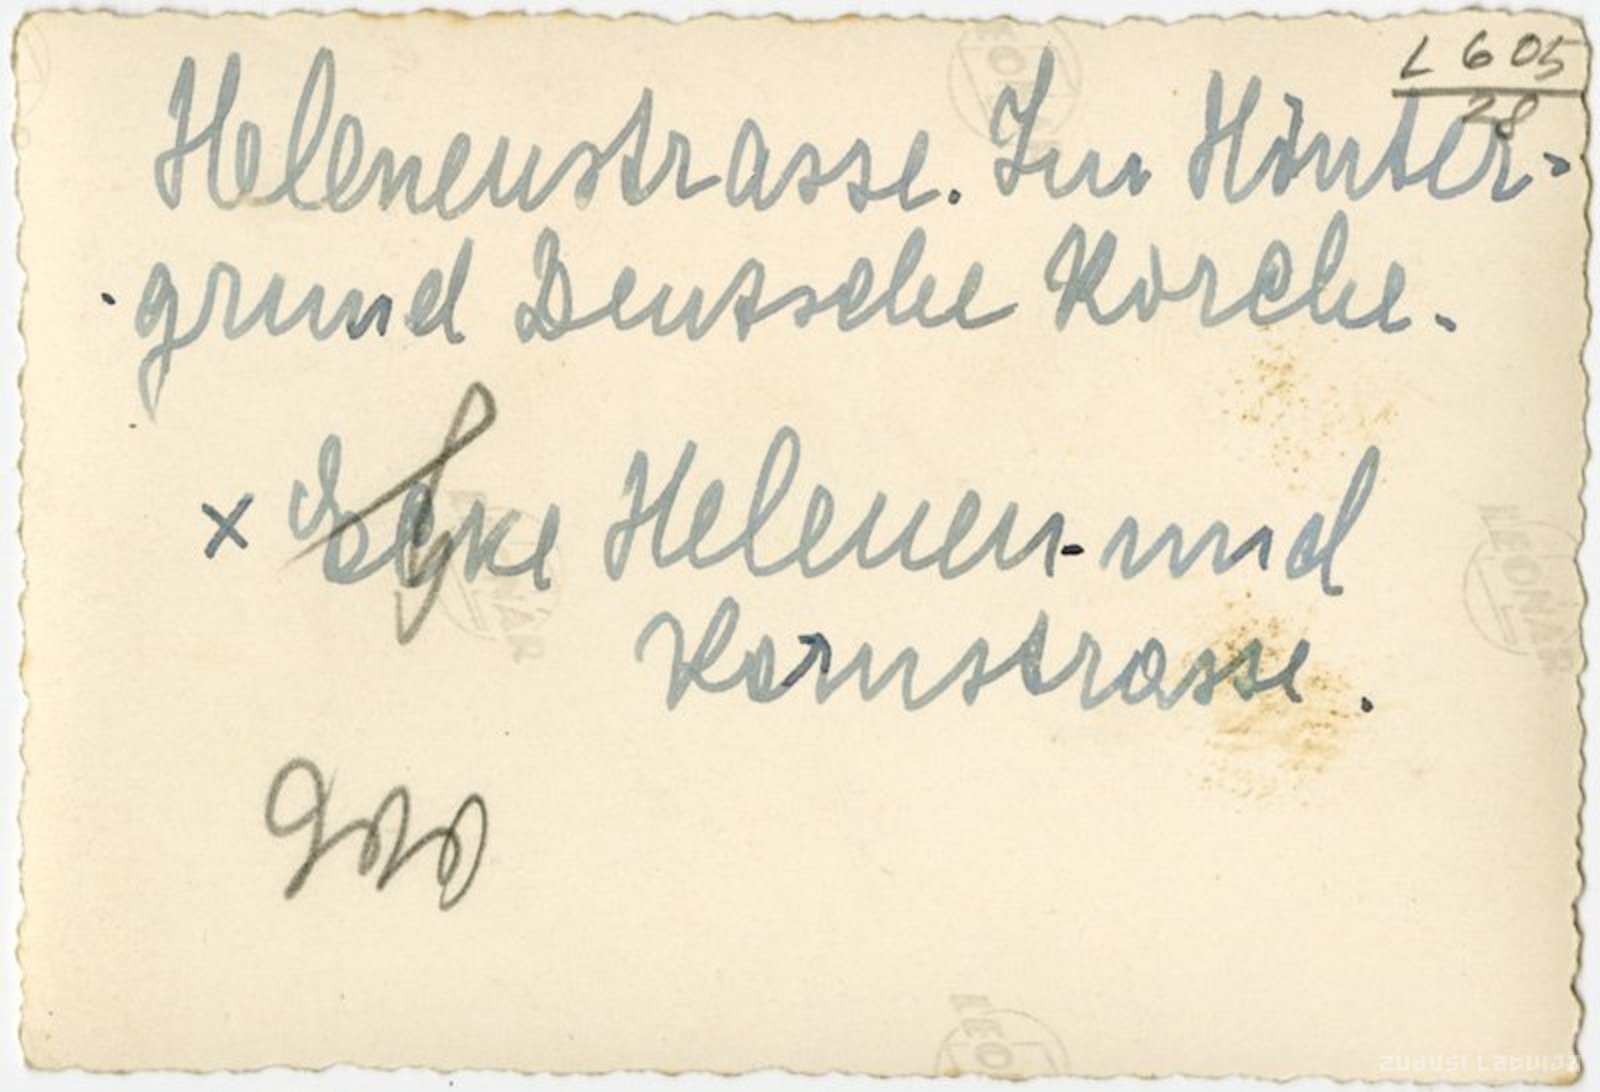 L 605
28
Helenenstrasse. Im Hinter-
grund Deutsche Kirche.
x Ecke Helenen- und
Kornstrasse.
LEONAR
LEONAR
LEONAR
LEO
Zudusi Latvija